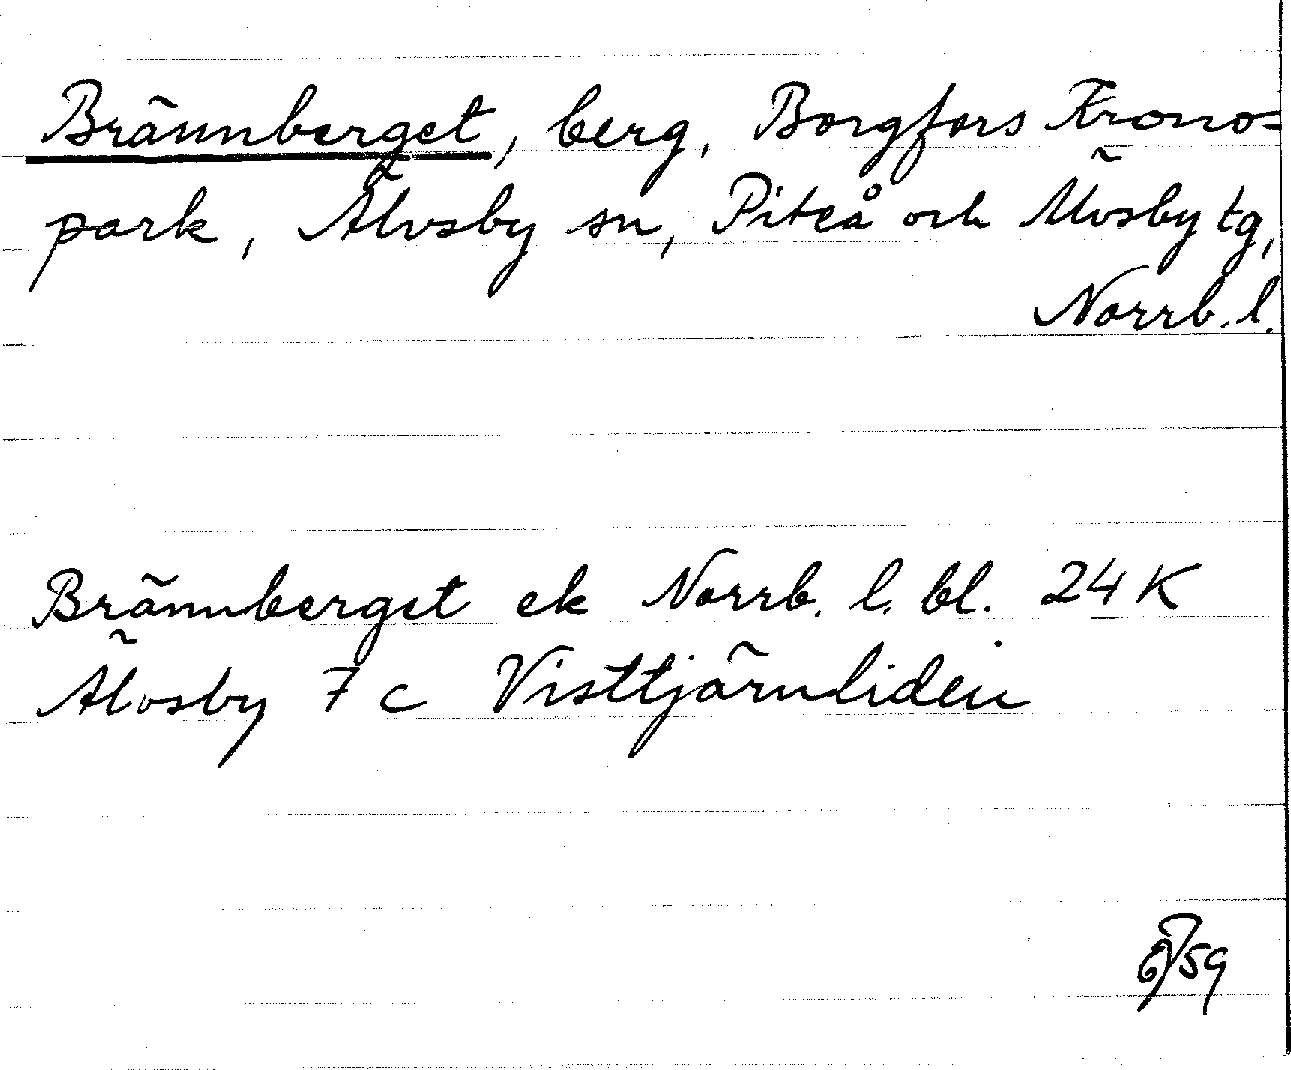 Brännberget, berg, Borgfors Krono=
park, Älvsby sn, Piteå och Älvsby tg,
Norrb. l.
Brännberget ek Norrb. l. bl. 24 K
Älvsby 7 c Visttjärnliden
59